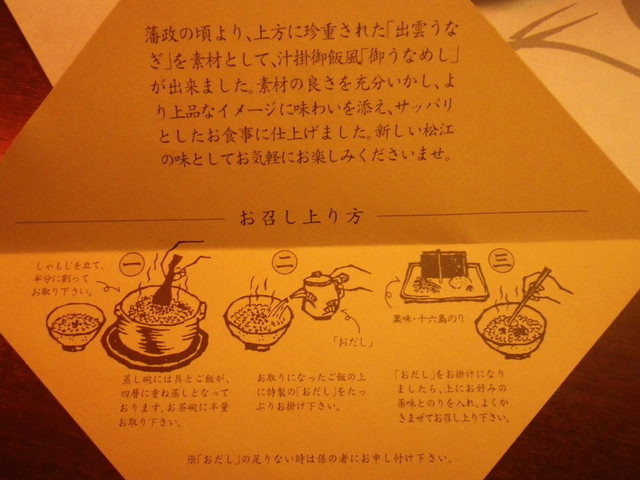 藩政の頃より、上方に珍重された「出雲うな
ぎ」を素材として、汁掛御飯風「御うなめし」
が出来ました。素材の良さを充分いかし、よ
り上品なイメージに味わいを添え、サッパリ
としたお食事に仕上げました。新しい松江
の味としてお気軽にお楽しみくださいませ。
お召し上り方
一
しゃもじを立て、
半分に割って
お取り下さい。
蒸し碗には具とご飯が、
四層に重ね蒸しとなって
おります。お茶碗に半量
お取り下さい。
二
「おだし」
お取りになったご飯の上
に特製の「おだし」をたっ
ぷりお掛け下さい。
三
薬味・十六島のり
「おだし」をお掛けになり
ましたら、上にお好みの
薬味とのりを入れ、よくか
きまぜてお召し上り下さい。
※「おだし」の足りない時は係の者にお申し付け下さい。